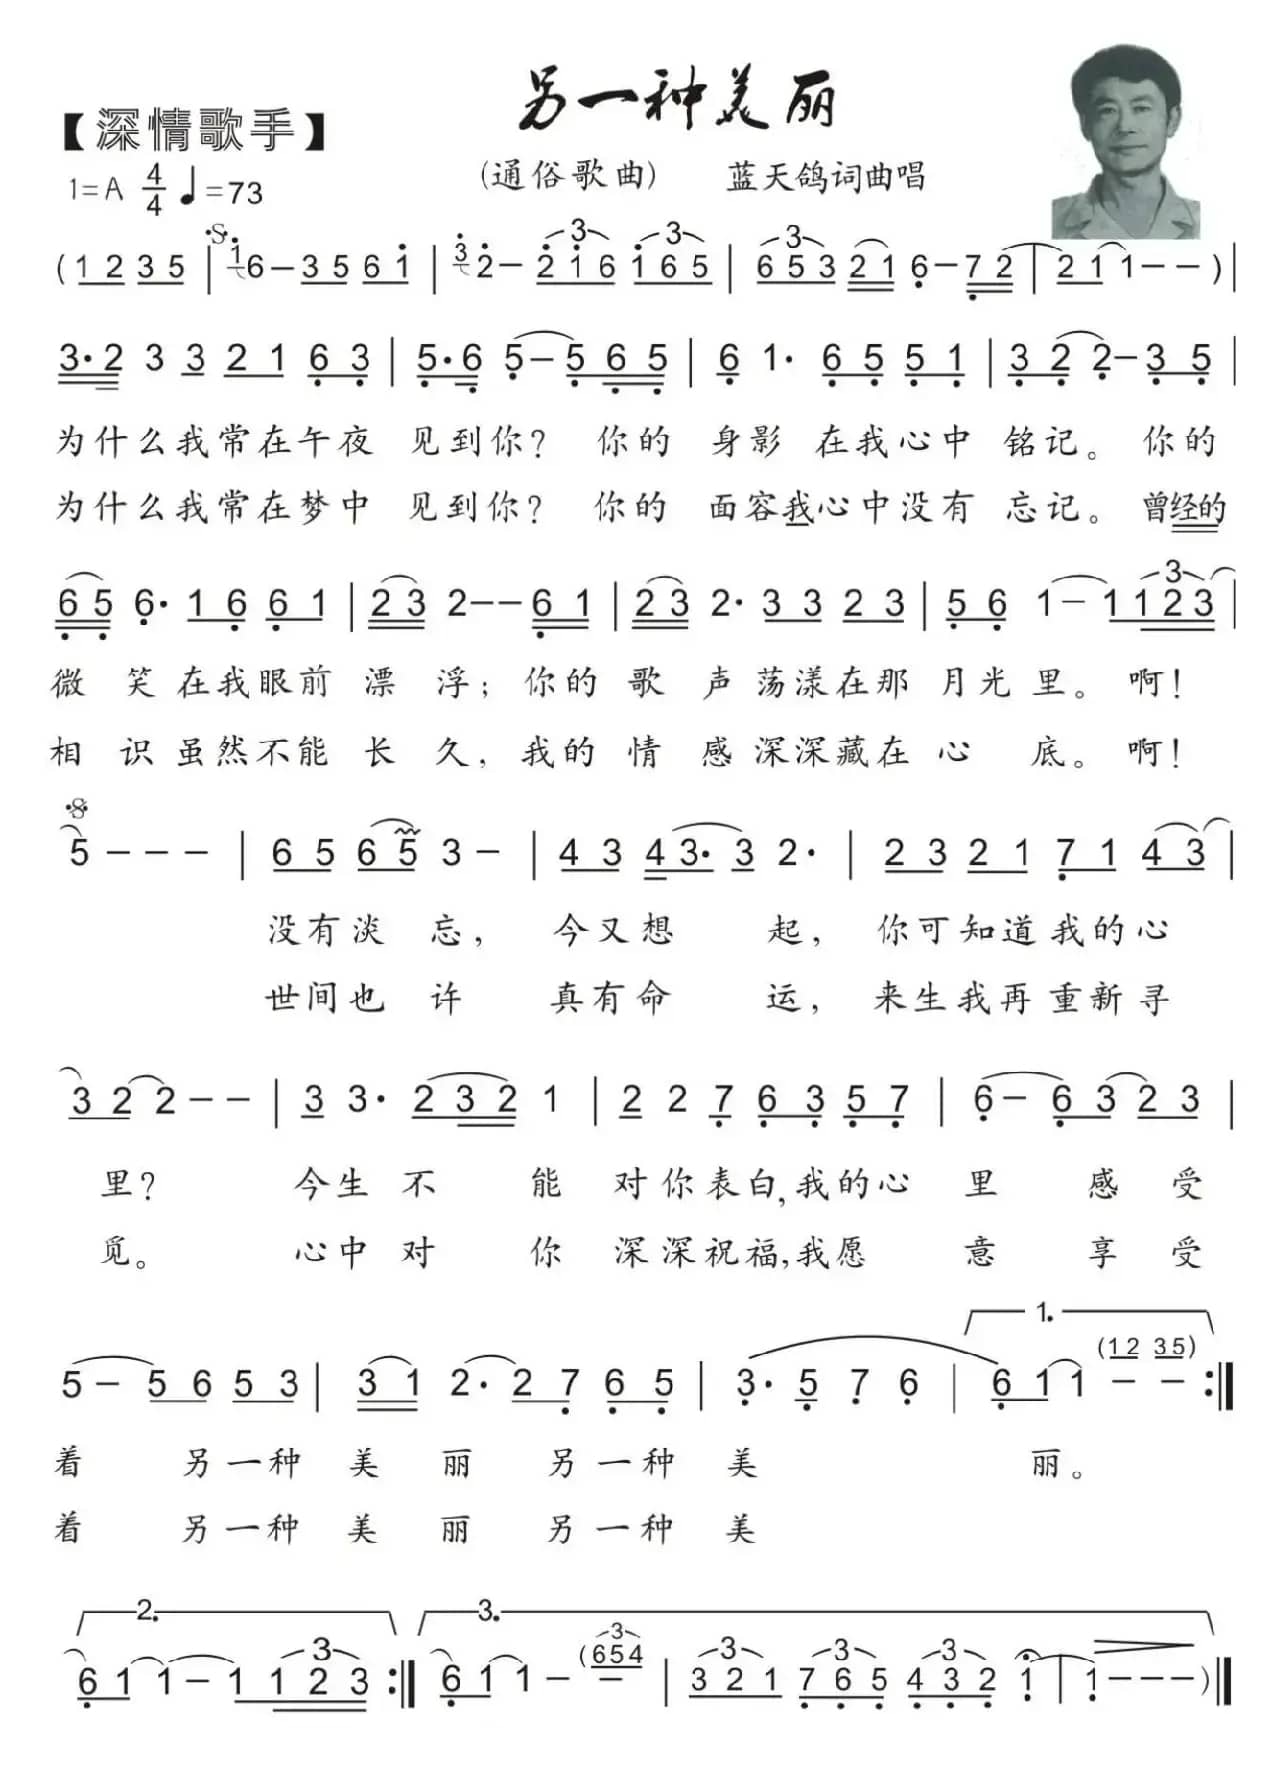 另一种美丽
【深情歌手】
(通俗歌曲) 蓝天鸽词曲唱
1=A 4/4 ♩=73
(1 2 3 5 | 1 6 - 3 5 6 1 | 3 2 - 2 1 6 1 6 5 | 6 5 3 2 1 6 - 7 2 | 2 1 1 - - ) |
3· 2 3 3 2 1 6 3 | 5· 6 5 - 5 6 5 | 6 1· 6 5 5 1 | 3 2 2 - 3 5 |
为什么我常在午夜 见到你? 你的 身影 在我心中 铭记。你的
为什么我常在梦中 见到你? 你的 面容我心中没有 忘记。曾经的
6 5 6· 1 6 6 1 | 2 3 2 - - 6 1 | 2 3 2· 3 3 2 3 | 5 6 1 - 1 1 2 3 |
微 笑 在我眼前 漂 浮; 你的 歌 声 荡漾在那 月光 里。 啊!
相 识 虽然不能 长 久, 我的 情 感 深深藏在 心 底。 啊!
5 - - - | 6 5 6 5 3 - | 4 3 4 3· 3 2· | 2 3 2 1 7 1 4 3 |
没有淡 忘, 今又想 起, 你可知道我的心
世间也 许 真有命 运, 来生我再重新寻
3 2 2 - - | 3 3· 2 3 2 1 | 2 2 7 6 3 5 7 | 6 - 6 3 2 3 |
里? 今生 不 能 对你表白,我的心 里 感 受
觅。 心中 对 你 深深祝福,我愿 意 享 受
1.
5 - 5 6 5 3 | 3 1 2· 2 7 6 5 | 3· 5 7 6 | 6 1 1 (1 2 3 5) - - :‖
着 另一种 美 丽 另一种 美 丽。
着 另一种 美 丽 另一种 美
2. 3.
6 1 1 - 1 1 2 3 :‖ 6 1 1 - (6 5 4 - | 3 2 1 7 6 5 4 3 2 1 | 1 - - - ) ‖